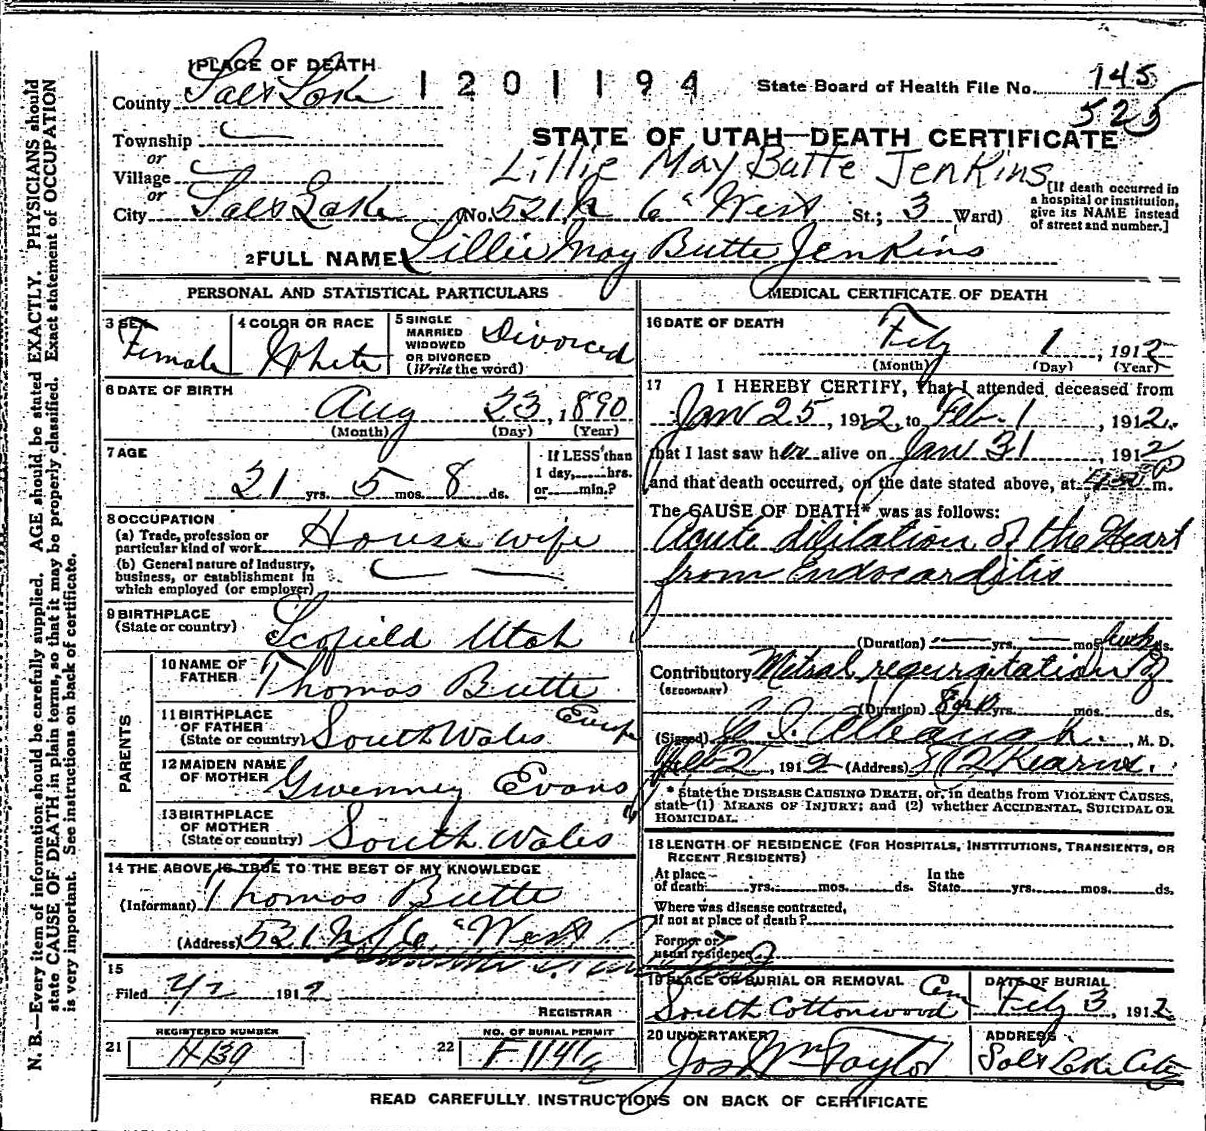 N. B.—Every item of information should be carefully supplied. AGE should be stated EXACTLY. PHYSICIANS should
state CAUSE OF DEATH in plain terms, so that it may be properly classified. Exact statement of OCCUPATION
is very important. See instructions on back of certificate.
1 PLACE OF DEATH
County Salt Lake
1201194
State Board of Health File No. 145
525
Township
or
Village
or
City Salt Lake
STATE OF UTAH—DEATH CERTIFICATE
Lillie May Butte Jenkins
(No. 521 N 6" West St.; 3 Ward)
[If death occurred in
a hospital or institution,
give its NAME instead
of street and number.]
2 FULL NAME Lillie May Butte Jenkins
PERSONAL AND STATISTICAL PARTICULARS
3 SEX
Female
4 COLOR OR RACE
White
5 SINGLE
MARRIED
WIDOWED
OR DIVORCED
(Write the word)
Divorced
6 DATE OF BIRTH
Aug 23, 1890
(Month) (Day) (Year)
7 AGE
21 yrs. 5 mos. 8 ds.
If LESS than
1 day, hrs.
or min.?
8 OCCUPATION
(a) Trade, profession or
particular kind of work House wife
(b) General nature of Industry,
business, or establishment in
which employed (or employer)
9 BIRTHPLACE
(State or country)
Scofield Utah
PARENTS
10 NAME OF
FATHER
Thomas Butte
11 BIRTHPLACE
OF FATHER
(State or country) South Wales Europe
12 MAIDEN NAME
OF MOTHER
Gwenney Evans
13 BIRTHPLACE
OF MOTHER
(State or country) South Wales
14 THE ABOVE IS TRUE TO THE BEST OF MY KNOWLEDGE
(Informant) Thomas Butte
(Address) 521 N 6 " West
15
Filed 2/2 1912
REGISTRAR
21
REGISTERED NUMBER
H139
22
NO. OF BURIAL PERMIT
MEDICAL CERTIFICATE OF DEATH
16 DATE OF DEATH
Feby 1, 1912
(Month) (Day) (Year)
17 I HEREBY CERTIFY, that I attended deceased from
Jan 25, 1912, to Feb. 1, 1912.
that I last saw her alive on Jan 31, 1912
and that death occurred, on the date stated above, at m.
The CAUSE OF DEATH* was as follows:
Acute dilitation of the Heart
from Endocarditis
(Duration) yrs. mos. ds.
Contributory Mitral regurgitation
(SECONDARY)
(Duration) yrs. mos. ds.
(Signed) M. D.
Feb 2, 1912 (Address) Kearns.
* State the DISEASE CAUSING DEATH, or, in deaths from VIOLENT CAUSES,
state (1) MEANS OF INJURY; and (2) whether ACCIDENTAL, SUICIDAL OR
HOMICIDAL.
18 LENGTH OF RESIDENCE (FOR HOSPITALS, INSTITUTIONS, TRANSIENTS, OR
RECENT RESIDENTS)
At place
of death yrs. mos. ds.
In the
State yrs. mos. ds.
Where was disease contracted,
if not at place of death?
Former or
usual residence
19 PLACE OF BURIAL OR REMOVAL
South Cottonwood Cem
DATE OF BURIAL
Feby 3, 1912
20 UNDERTAKER
Jos Wm Taylor
ADDRESS
Salt Lake City
READ CAREFULLY INSTRUCTIONS ON BACK OF CERTIFICATE